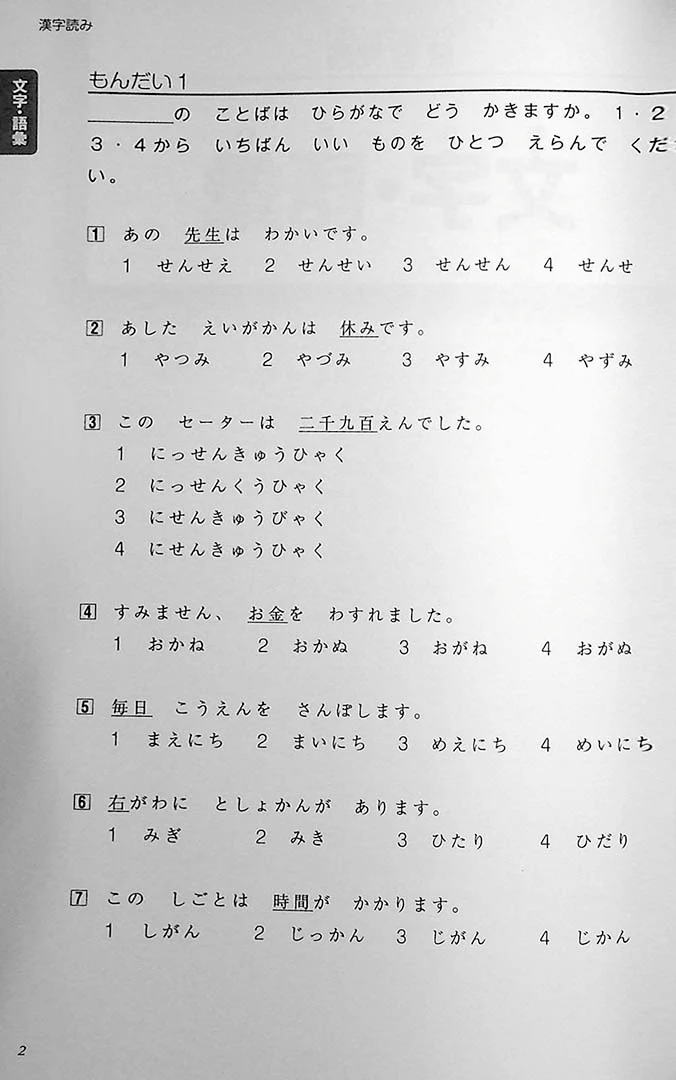 漢字読み
文字・語彙
もんだい1
＿＿＿＿の ことばは ひらがなで どう かきますか。1・2
3・4から いちばん いい ものを ひとつ えらんで くださ
い。
1 あの 先生は わかいです。
1 せんせえ 2 せんせい 3 せんせん 4 せんせ
2 あした えいがかんは 休みです。
1 やつみ 2 やづみ 3 やすみ 4 やずみ
3 この セーターは 二千九百えんでした。
1 にっせんきゅうひゃく
2 にっせんくうひゃく
3 にせんきゅうびゃく
4 にせんきゅうひゃく
4 すみません、 お金を わすれました。
1 おかね 2 おかぬ 3 おがね 4 おがぬ
5 毎日 こうえんを さんぽします。
1 まえにち 2 まいにち 3 めえにち 4 めいにち
6 右がわに としょかんが あります。
1 みぎ 2 みき 3 ひたり 4 ひだり
7 この しごとは 時間が かかります。
1 しがん 2 じっかん 3 じがん 4 じかん
2